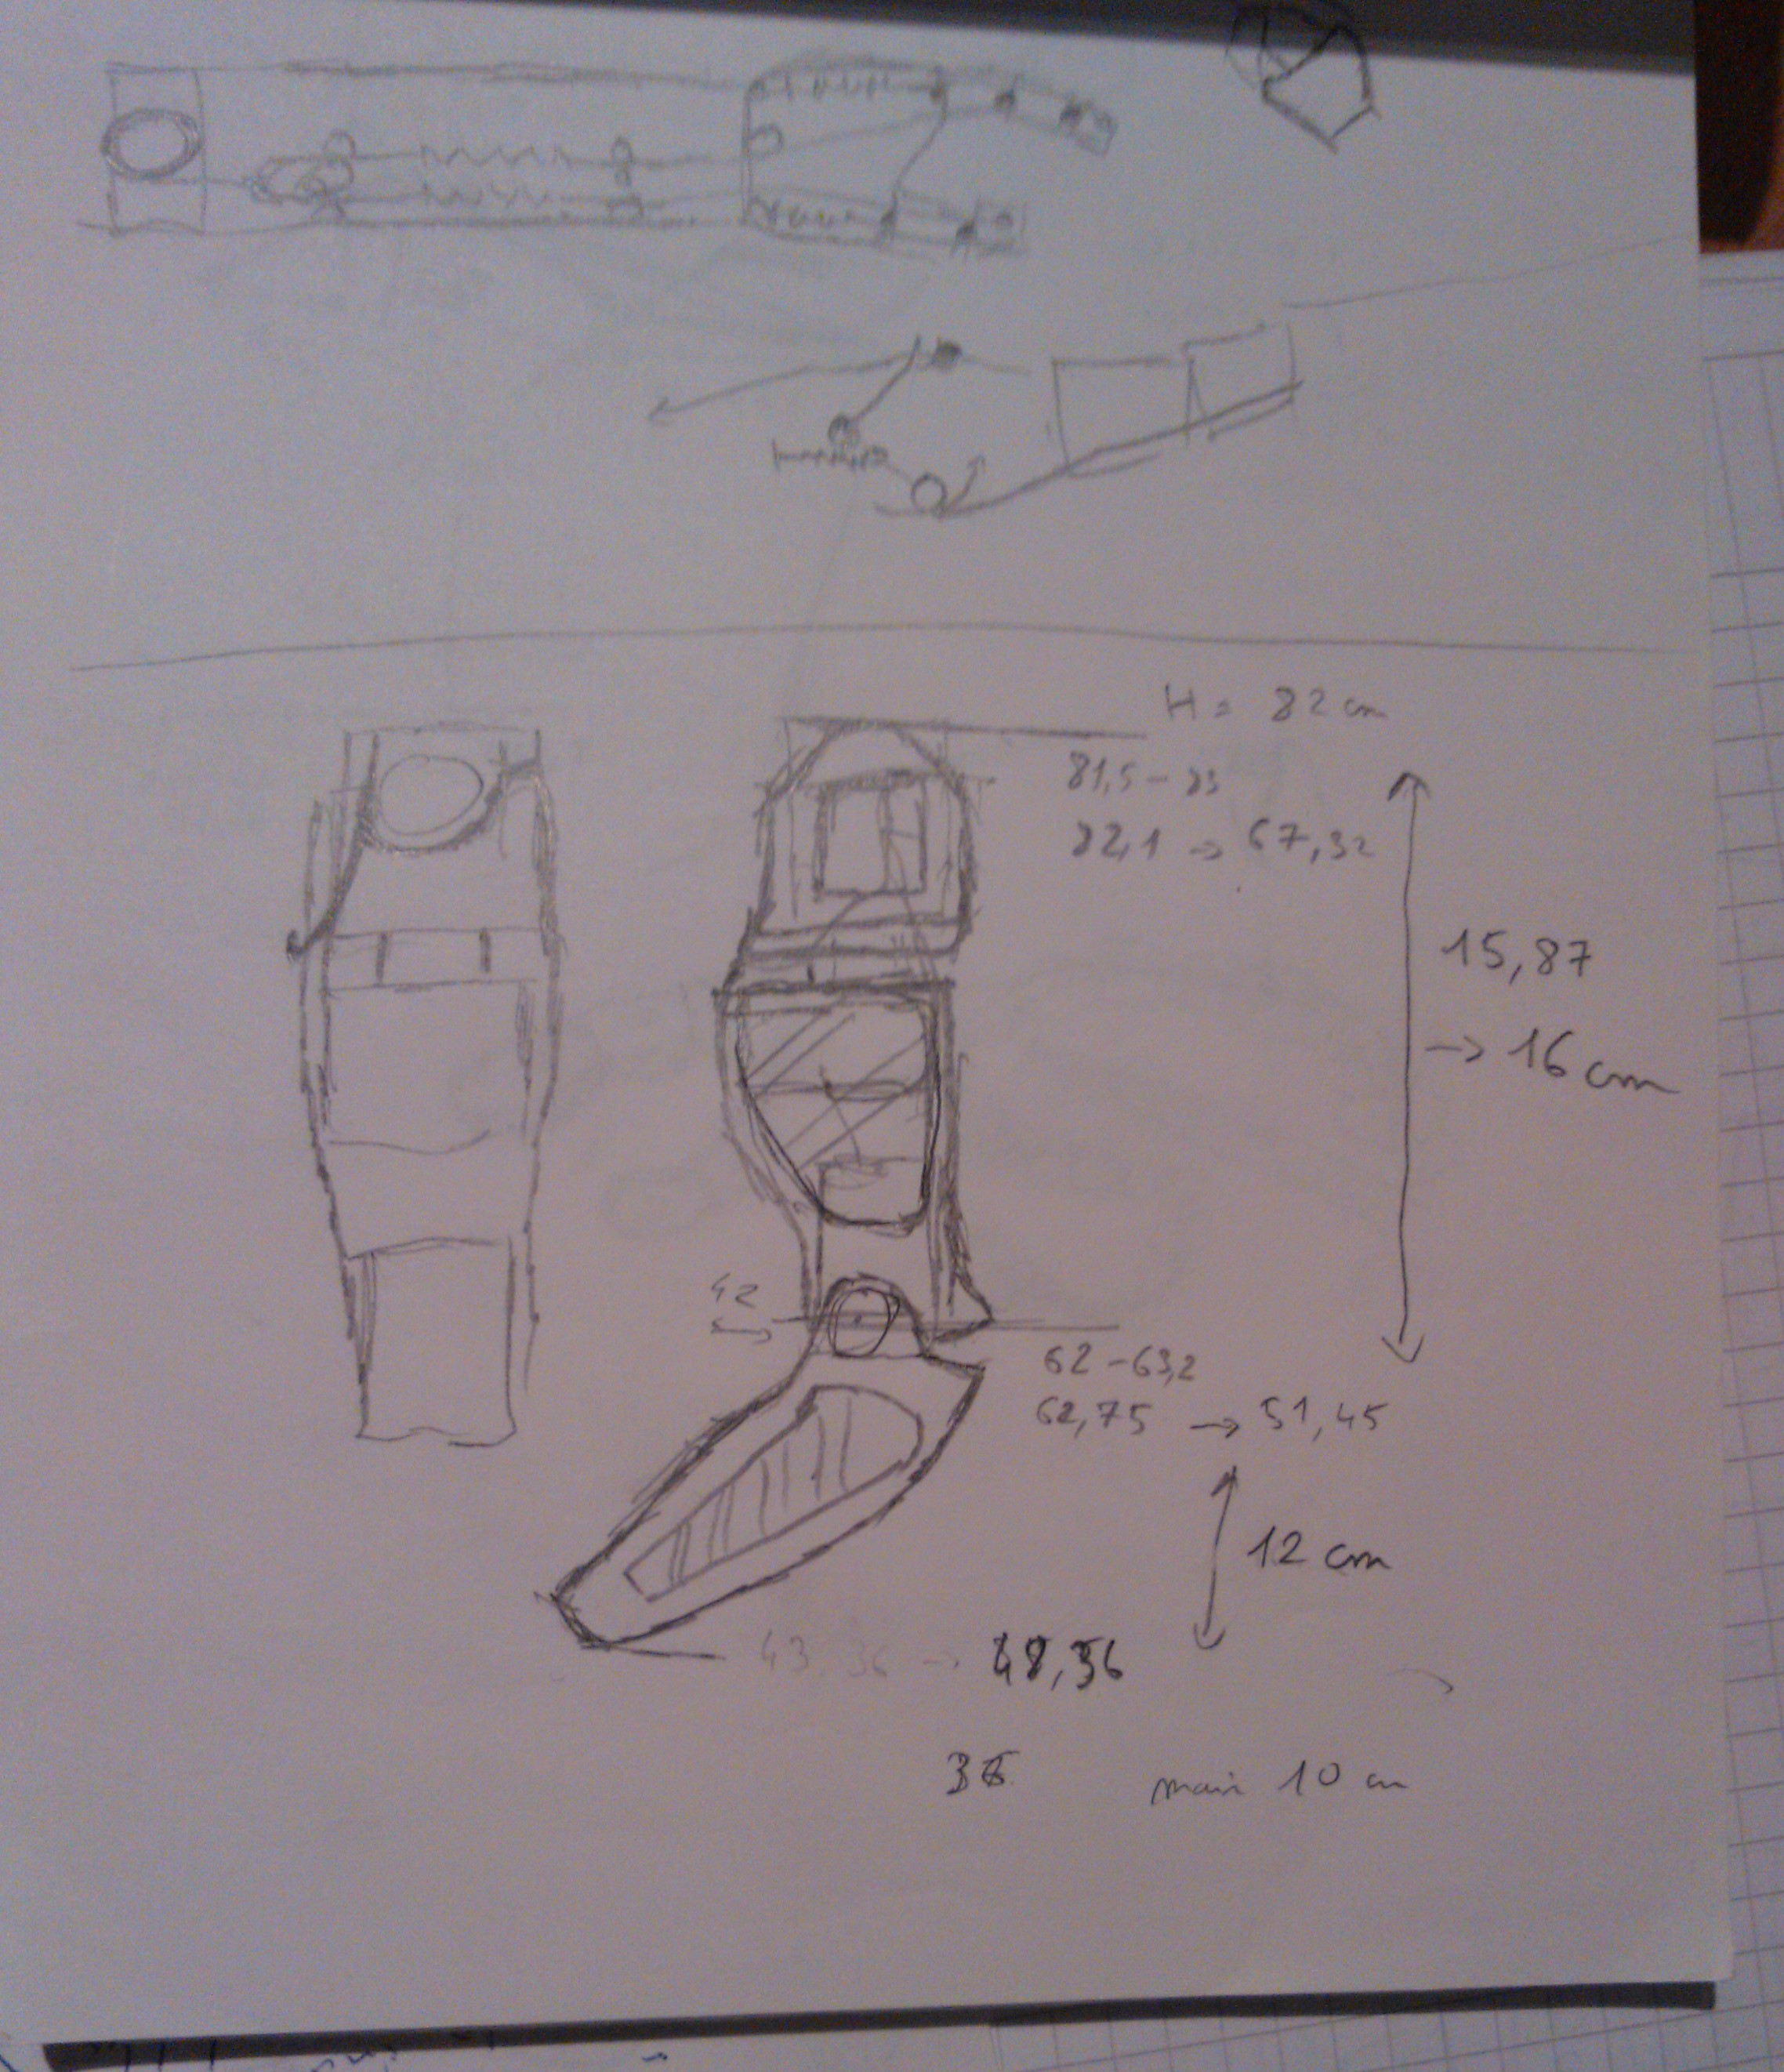 H = 82 cm
81,5 - 83
82,1 → 67,32
15,87
→ 16 cm
42
62 - 63,2
62,75 → 51,45
12 cm
43,36 → 48,36
36
main 10 cm